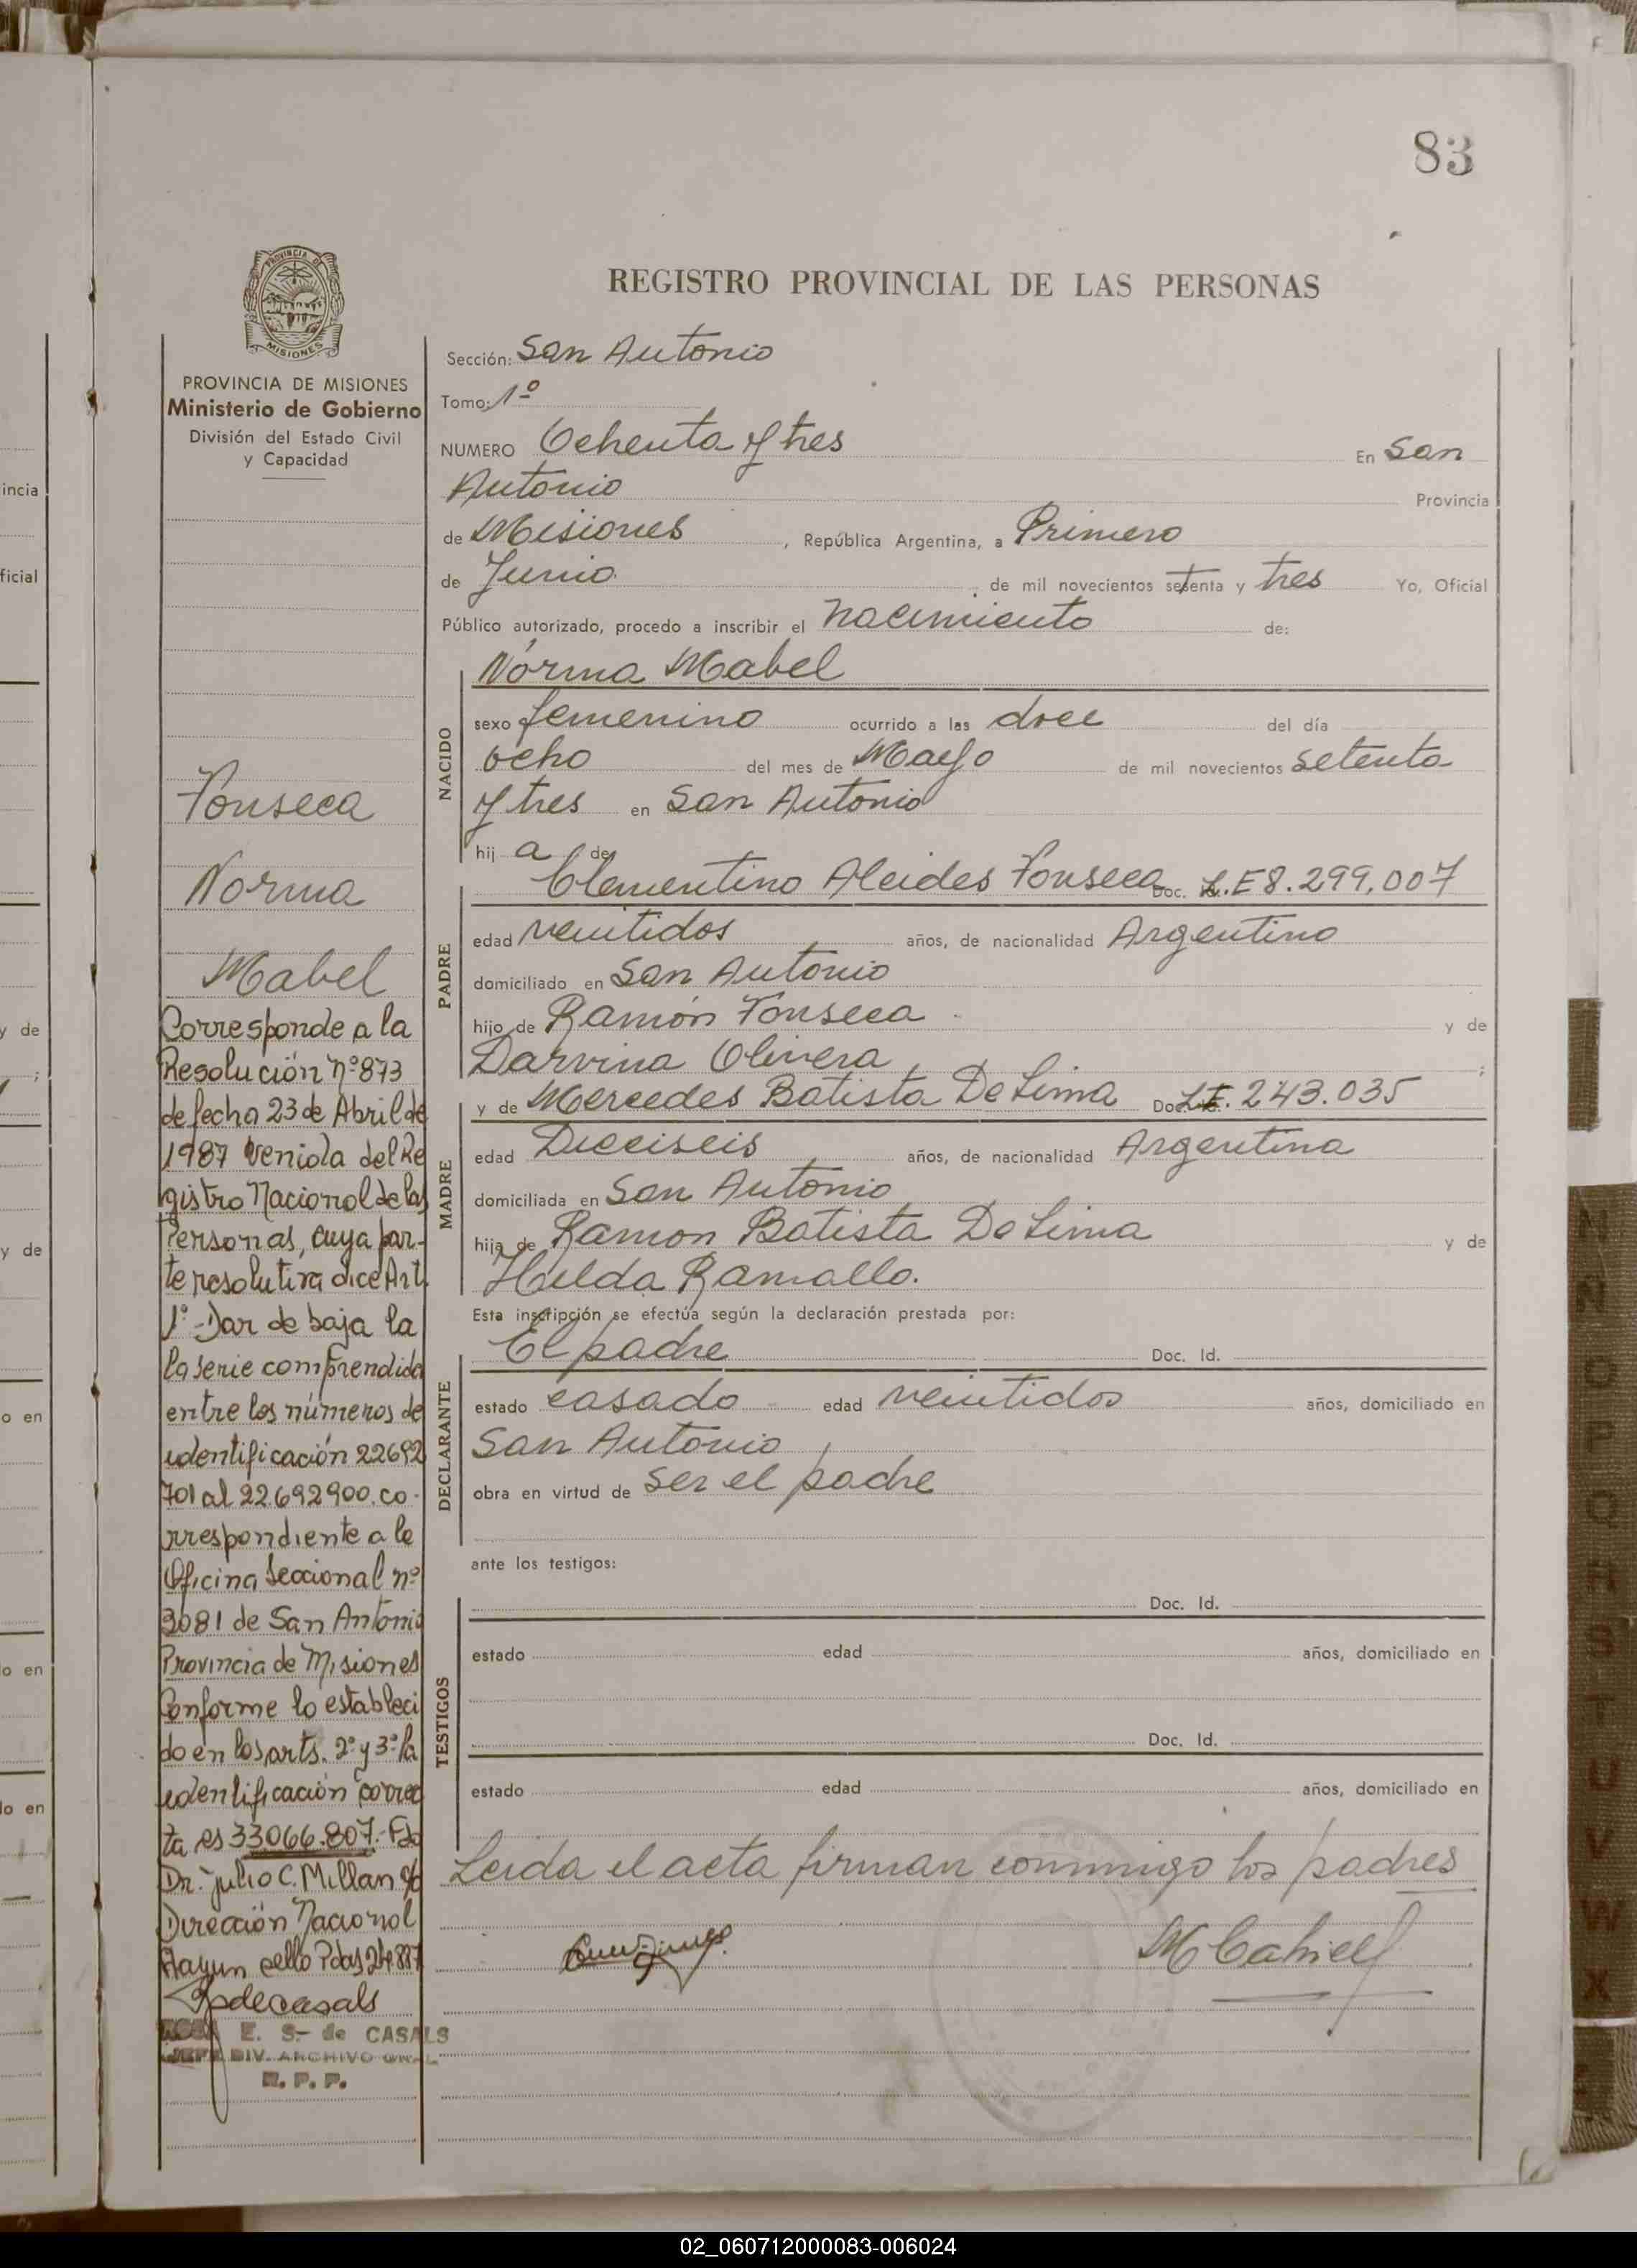 83
PROVINCIA DE
MISIONES
PROVINCIA DE MISIONES
Ministerio de Gobierno
División del Estado Civil
y Capacidad
Fonseca
Norma
Mabel
Corresponde a la
Resolución nº 873
de fecha 23 de Abril de
1987 venida del Re
gistro Nacional de las
Personas, cuya par-
te resolutiva dice Art.
1º- Dar de baja la
la serie comprendida
entre los números de
identificación 22692
701 al 22.692900. co-
rrespondiente a la
Oficina Seccional nº
3081 de San Antonio
Provincia de Misiones
Conforme lo estableci
do en los arts. 2º y 3º la
identificación correc
ta es 33066.807.- Fdo
Dr. Julio C. Millan
Dirección Nacional
sello Pdas
E. S.- de CASALS
JEFE DIV. ARCHIVO GRAL
R. P. P.
REGISTRO PROVINCIAL DE LAS PERSONAS
Sección: San Antonio
Tomo: 1º
NUMERO Ochenta y tres En San
Antonio Provincia
de Misiones, República Argentina, a Primero
de Junio de mil novecientos setenta y tres Yo, Oficial
Público autorizado, procedo a inscribir el nacimiento de:
Norma Mabel
NACIDO
sexo femenino ocurrido a las doce del día
ocho del mes de Mayo de mil novecientos setenta
y tres en San Antonio
hij a de
Clementino Alcides Fonseca Doc. L.E 8.299.007
PADRE
edad veintidos años, de nacionalidad Argentino
domiciliado en San Antonio
hijo de Ramón Fonseca y de
Darvina Olivera ;
MADRE
y de Mercedes Batista De Lima Doc. 243.035
edad Dieciseis años, de nacionalidad Argentina
domiciliada en San Antonio
hija de Ramon Batista De Lima y de
Hilda Ramallo.
Esta inscripción se efectúa según la declaración prestada por:
El padre Doc. Id.
DECLARANTE
estado casado edad veintidos años, domiciliado en
San Antonio
obra en virtud de ser el padre
ante los testigos:
Doc. Id.
TESTIGOS
estado edad años, domiciliado en
Doc. Id.
estado edad años, domiciliado en
Leida el acta firman conmigo los padres
02_060712000083-006024